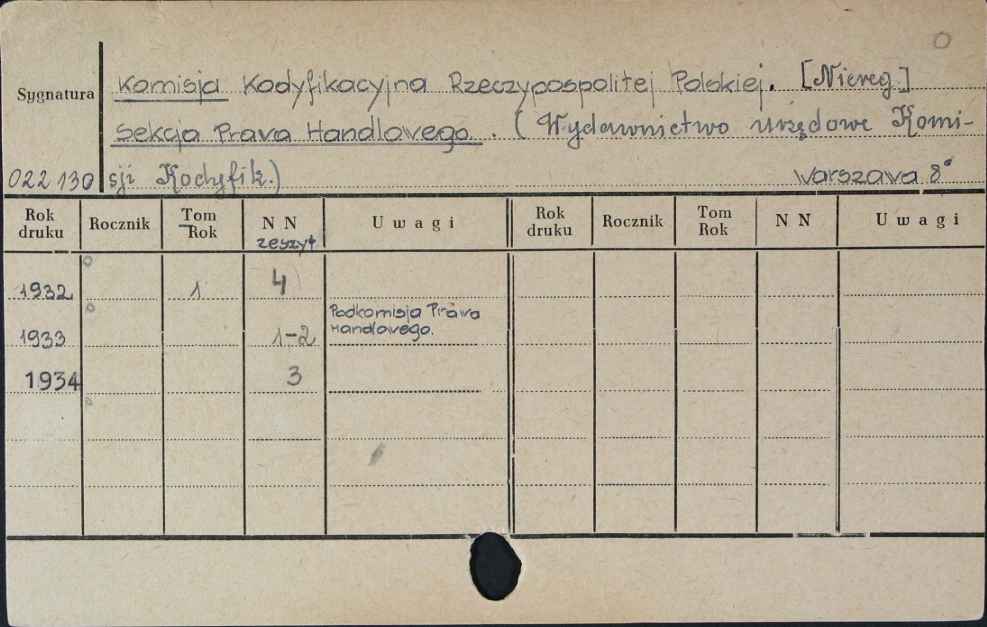 O
Sygnatura
Komisja Kodyfikacyjna Rzeczypospolitej Polskiej. [Niereg.]
Sekcja Prawa Handlowego. (Wydawnictwo urzędowe Komi-
022130 sji Kodyfik.) Warszawa 8°
Rok druku Rocznik Tom Rok N N zeszyt Uwagi Rok druku Rocznik Tom Rok N N Uwagi
1932 1 4
Podkomisja Prawa
1933 1-2 Handlowego.
1934 3